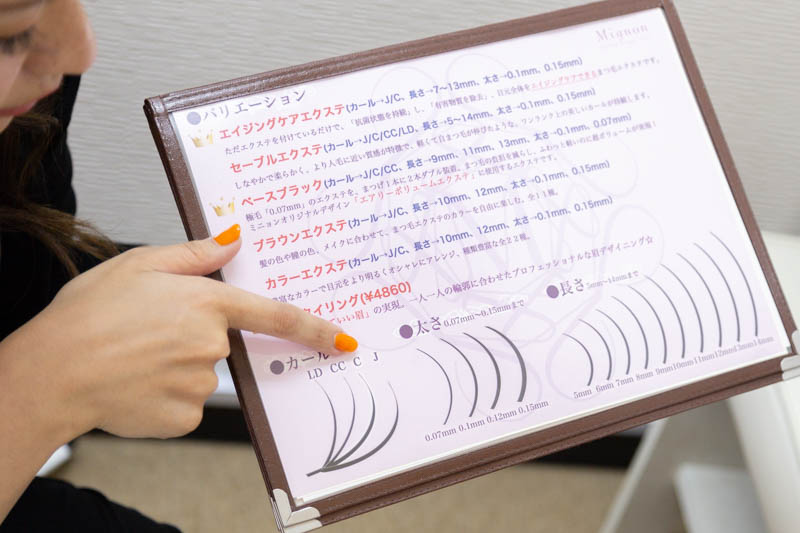 Mignon
●バリエーション
エイジングケアエクステ(カール→J/C、長さ→7〜13mm、太さ→0.1mm、0.15mm)
ただエクステを付けているだけで、「抗菌状態を持続」し、「有害物質を除去」、目元全体をエイジングケアできるまつ毛エクステです。
セーブルエクステ(カール→J/C/CC/LD、長さ→5〜14mm、太さ→0.1mm、0.15mm)
しなやかで柔らかく、より人毛に近い質感が特徴で、軽くて自まつ毛が伸びたような、ワンランク上の美しいカールが持続します。
ベースブラック(カール→J/C/CC、長さ→9mm、11mm、13mm、太さ→0.1mm、0.07mm)
極毛「0.07mm」のエクステを、まつげ1本に2本ダブル装着。まつ毛の負担を減らし、ふわっと軽いのに超ボリュームが実現!
ミニョンオリジナルデザイン「エアリーボリュームエクステ」に使用するエクステです。
ブラウンエクステ(カール→J/C、長さ→10mm、12mm、太さ→0.1mm、0.15mm)
髪の色や瞳の色、メイクに合わせて、まつ毛エクステのカラーを自由に楽しむ。全11種。
カラーエクステ(カール→J/C、長さ→10mm、12mm、太さ→0.1mm、0.15mm)
豊富なカラーで目元をより明るくオシャレにアレンジ、種類豊富な全22種。
イリング(¥4860)
いい眉」の実現。一人一人の輪郭に合わせたプロフェッショナルな眉デザイニング☆
●カール
LD CC C J
●太さ 0.07mm〜0.15mmまで
0.07mm 0.1mm 0.12mm 0.15mm
●長さ 5mm〜14mmまで
5mm 6mm 7mm 8mm 9mm 10mm 11mm 12mm 13mm 14mm